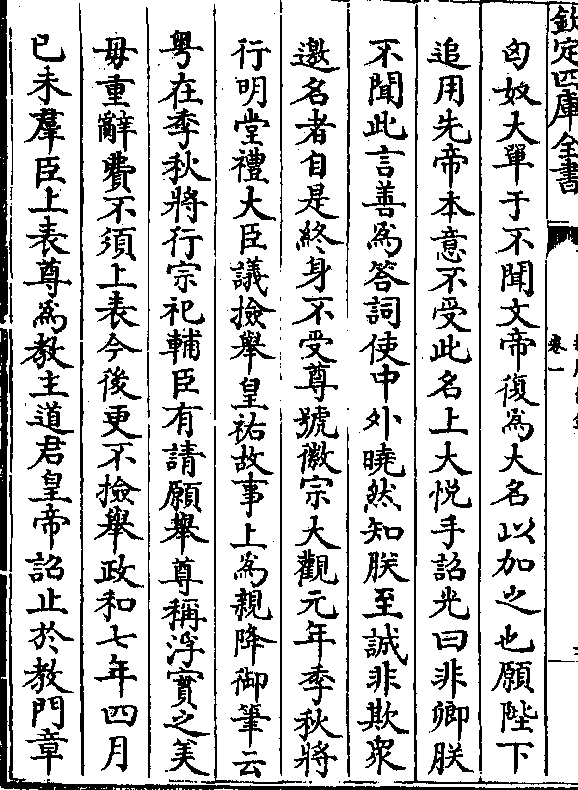 欽定四庫全書
卷一
匈奴大單于不聞文帝復為大名以加之也願陛下
追用先帝本意不受此名上大悅手詔光曰非卿朕
不聞此言善為答詞使中外曉然知朕至誠非欺衆
邀名者自是終身不受尊號徽宗大觀元年季秋將
行明堂禮大臣議撿舉皇祐故事上為親降御筆云
粤在季秋將行宗祀輔臣有請願舉尊稱浮實之美
毋重辭費不須上表今後更不撿舉政和七年四月
已未羣臣上表尊為教主道君皇帝詔止於教門章